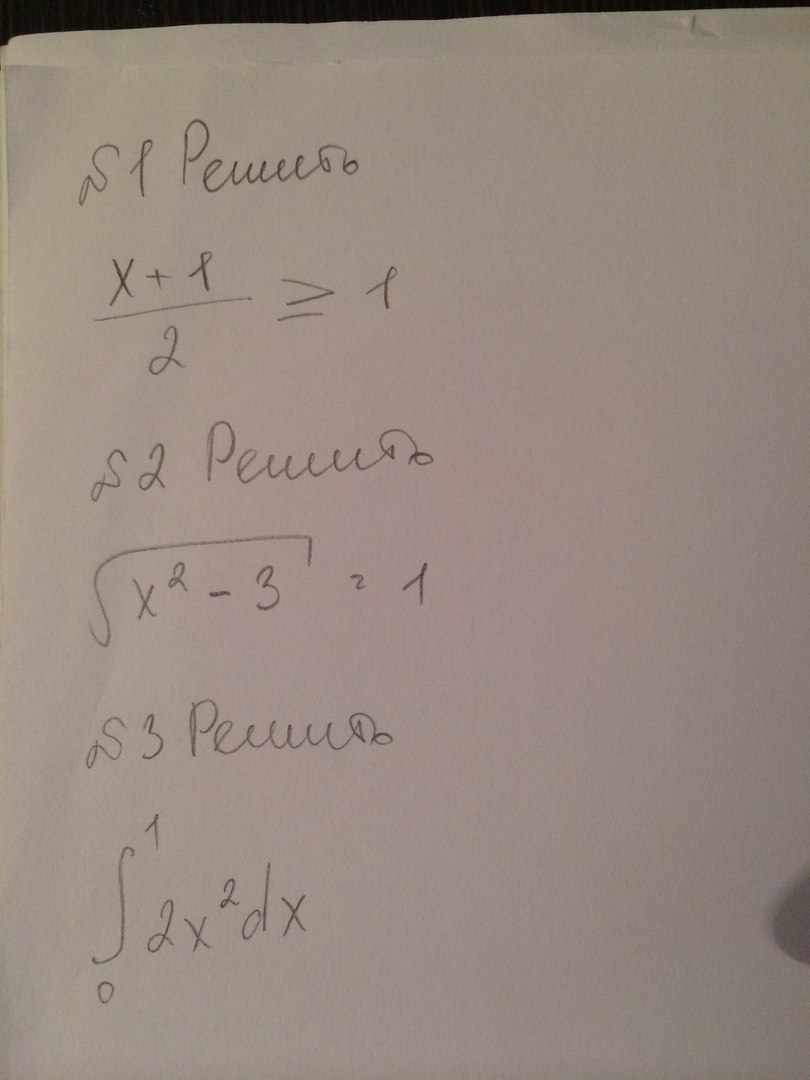 №1 Решить
x+1
2
≥ 1
№2 Решить
√x²-3 = 1
№3 Решить
1
∫2x²dx
0